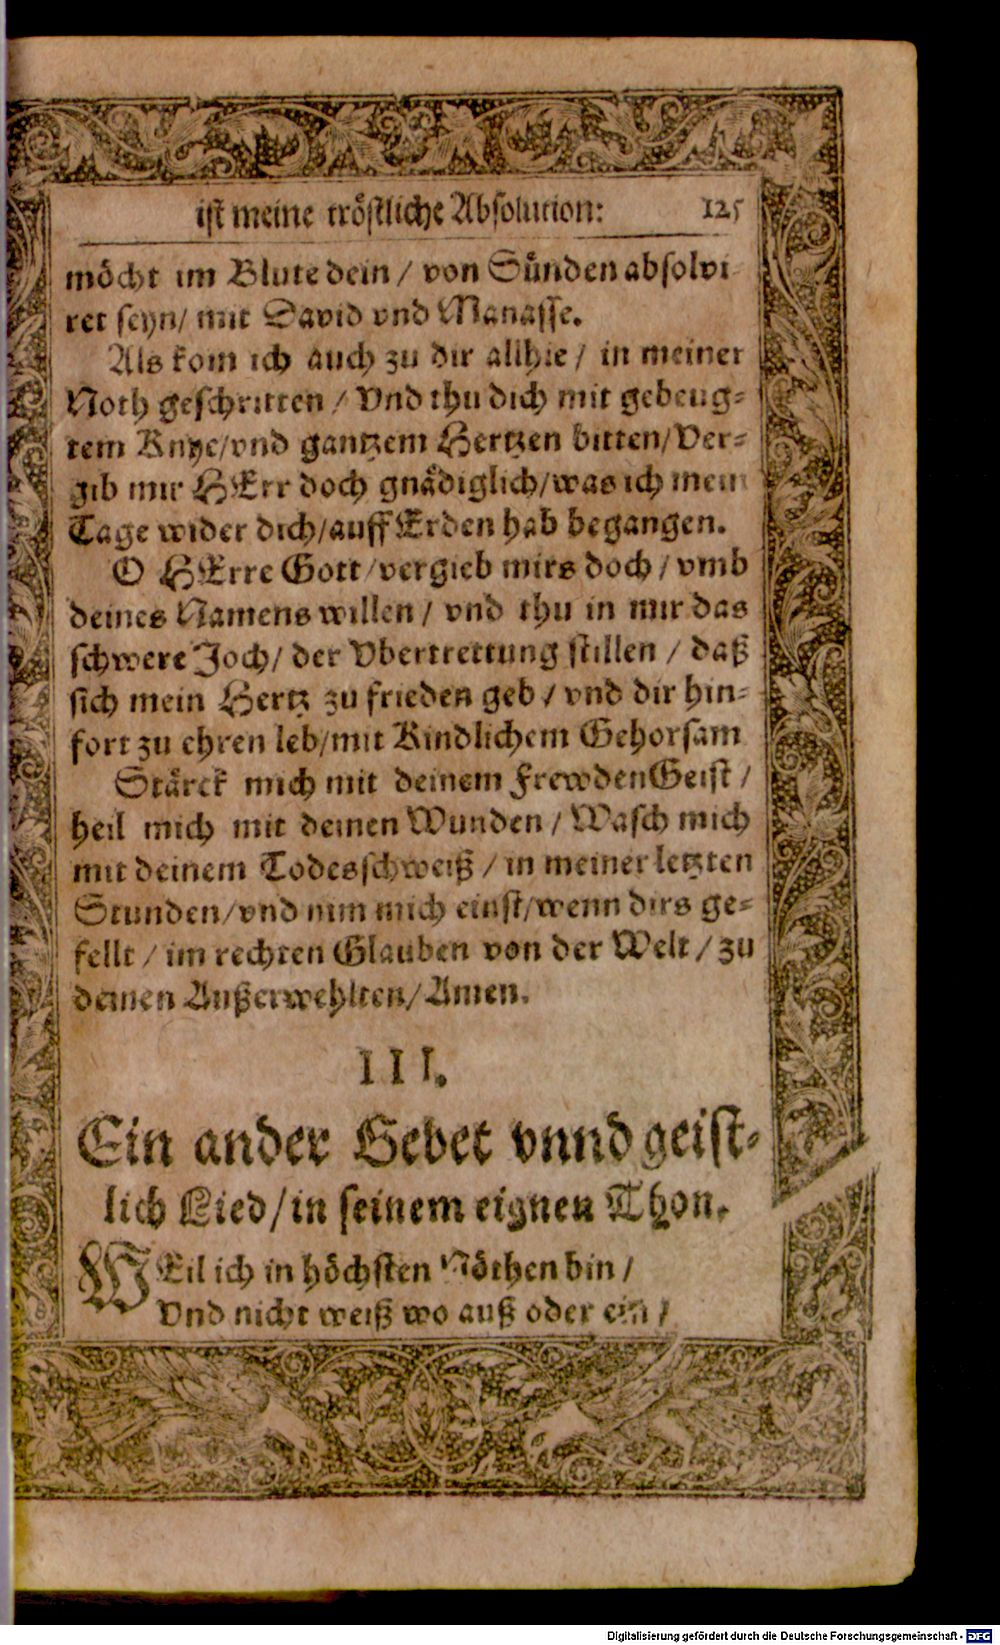 ist meine tröstliche Absolution: 125
möcht im Blute dein / von Sünden absolvi-
ret seyn / mit David vnd Manasse.
Als kom ich auch zu dir allhie / in meiner
Noth geschritten / Vnd thu dich mit gebeug-
tem Knye / vnd gantzem Hertzen bitten / Ver-
gib mir HErr doch gnädiglich / was ich mein
Tage wider dich / auff Erden hab begangen.
O HErre Gott / vergieb mirs doch / vmb
deines Namens willen / vnd thu in mir das
schwere Joch / der Vbertrettung stillen / daß
sich mein Hertz zu frieden geb / vnd dir hin-
fort zu ehren leb / mit Kindlichem Gehorsam
Stärck mich mit deinem FrewdenGeist /
heil mich mit deinen Wunden / Wasch mich
mit deinem Todesschweiß / in meiner letzten
Stunden / vnd nim mich einst / wenn dirs ge-
fellt / im rechten Glauben von der Welt / zu
deinen Außerwehlten / Amen.
III.
Ein ander Gebet vnnd geist-
lich Lied / in seinem eignen Thon.
WEil ich in höchsten Nöthen bin /
Vnd nicht weiß wo auß oder ein /
Digitalisierung gefördert durch die Deutsche Forschungsgemeinschaft - DFG